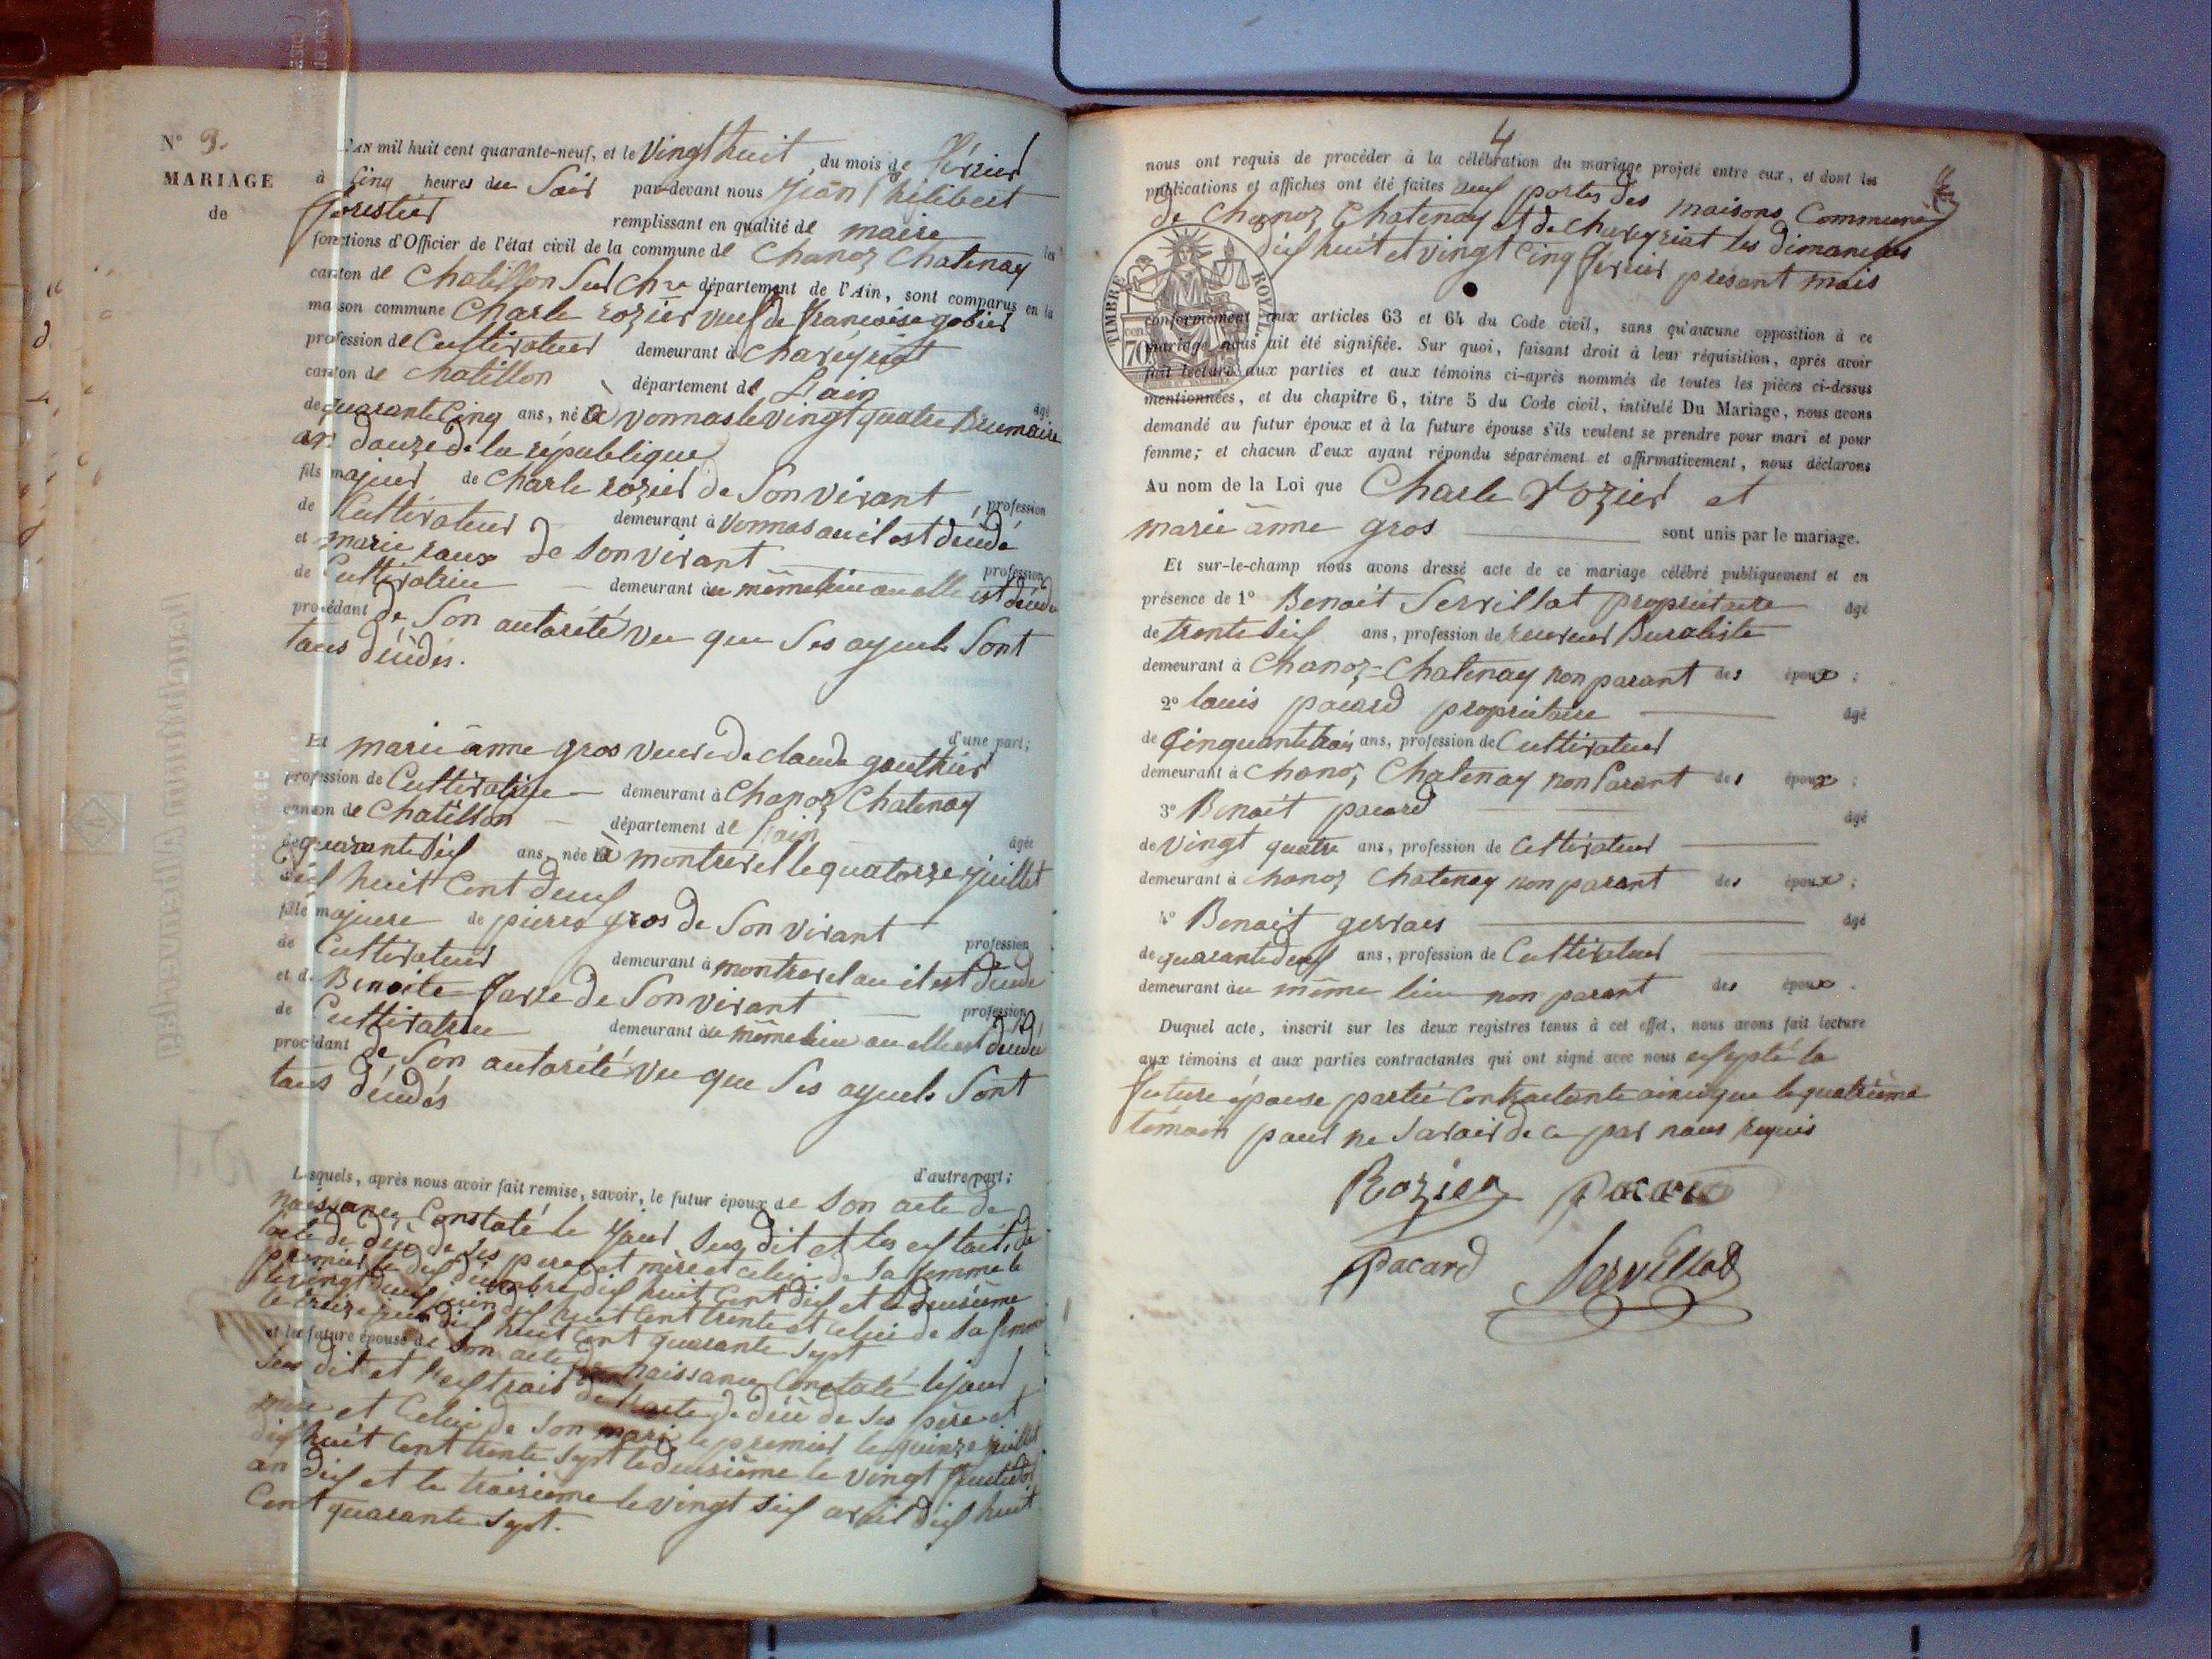 N° 3.
MARIAGE
de
L'AN mil huit cent quarante-neuf, et le Vingt huit du mois de février
à Cinq heures du Soir par-devant nous Jean Philibert
forestier remplissant en qualité de maire les
fonctions d'Officier de l'état civil de la commune de Chanoz Chatenay
canton de Chatillon Sur Ch.ne département de l'Ain, sont comparus en la
maison commune Charle rozier veuf de francoise gobier
profession de Cultivateur demeurant à Chaveyriat
canton de Chatillon département de Lain
âgé
de quarante Cinq ans, né à Vonnas le vingt quatre Brumaire
an douze de la république
fils majeur de Charle rozier de Son vivant profession
de Cultivateur demeurant à Vonnas ou il est décédé
et marie raux de Son vivant profession
de Cultivatrice demeurant au même lieu ou elle est décédé
procédant de Son autorité vu que Ses ayeuls Sont
tous décédés.
d'une part;
Et marie ânne gros veuve de claude gauthier
profession de Cultivatrice demeurant à Chanoz Chatenay
canton de Chatillon département de Lain
âgée
de quarante Six ans, née à montrevel le quatorze juillet
dix huit Cent deux
fille majeure de pierre gros de Son vivant profession
de Cultivateur demeurant à montrevel ou il est décédé
et de Benoite farre de Son vivant profession
de Cultivatrice demeurant au même lieu ou elle est décédé
procédant de Son autorité vu que Ses ayeuls Sont
tous décédés
d'autre part;
Lesquels, après nous avoir fait remise, savoir, le futur époux de Son acte de
naissance Constaté le jour Sus dit et les extraits de
lacte de décè de Ses pere et mère et celui de Sa femme le
premier le dix décembre dix huit Cent dix et le deuxième
le vingt deux juin dix huit Cent trente et celui de Sa femme
le treize juin dix huit Cent quarante Sept
et la future épouse de Son acte de naissance Constaté le jour
Sus dit et l'extrait de lacte de décè de Ses père et
mère et Celui de Son mari le premier le quinze juillet
dix huit Cent trente Sept le deuxième le vingt fructidor
an dix et le troisième le vingt Six avril dix huit
Cent quarante Sept.
4
nous ont requis de procéder à la célébration du mariage projeté entre eux, et dont les
publications et affiches ont été faites aux portes des maisons Communes
de Chanoz Chatenay et de Chaveyriat les dimanches
dix huit et vingt Cinq février présent mois
TIMBRE ROYAL
70
conformément aux articles 63 et 64 du Code civil, sans qu'aucune opposition à ce
mariage nous ait été signifiée. Sur quoi, faisant droit à leur réquisition, après avoir
fait lecture aux parties et aux témoins ci-après nommés de toutes les pièces ci-dessus
mentionnées, et du chapitre 6, titre 5 du Code civil, intitulé Du Mariage, nous avons
demandé au futur époux et à la future épouse s'ils veulent se prendre pour mari et pour
femme; et chacun d'eux ayant répondu séparément et affirmativement, nous déclarons
Au nom de la Loi que Charle rozier et
marie ânne gros sont unis par le mariage.
Et sur-le-champ nous avons dressé acte de ce mariage célébré publiquement et en
présence de 1° Benoit Servillat propriétaire âgé
de trente Six ans, profession de receveur Buraliste
demeurant à Chanoz-Chatenay non parant des époux;
2° louis pacard propriétaire âgé
de Cinquante trois ans, profession de Cultivateur
demeurant à Chanoz Chatenay non Parant des époux;
3° Benoit pacard âgé
de vingt quatre ans, profession de Cultivateur
demeurant à Chanoz Chatenay non parant des époux;
4° Benoit gervais âgé
de quarante deux ans, profession de Cultivateur
demeurant au même lieu non parant des époux.
Duquel acte, inscrit sur les deux registres tenus à cet effet, nous avons fait lecture
aux témoins et aux parties contractantes qui ont signé avec nous exsepté la
future épouse partié Contractante ainsi que le quatrième
témoin pour ne Savoir de ce par nous requis
Rozier Pacard
Pacard Servillat